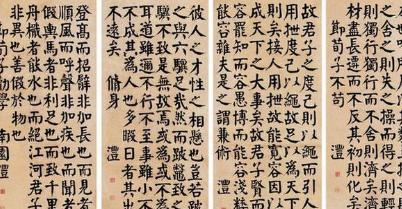 之舍之則失之操而得之則輕輕
則獨行獨行而不舍則濟矣濟而
材盡長遷而不反其初則化矣
節荀子不苟 澧
故君子之度己則以繩
用抴度己以繩故足以為天下法
則矣接人用抴故能寬容因
成天下之大事矣故君子賢而能
容罷知而能容愚博而能容淺粹而
能容雜夫是之謂兼術 澧
彼人之才性之相懸也豈若跛鱉
之與六驥足哉然而跛鱉致之六
驥不致是無他故焉或為之或不為爾
道雖邇不行不至事雖小不為不成
其為人也多暇日者其出入
不遠矣 修身 澧
登高而招臂非加長也而見者遠
順風而呼聲非加疾也而聞者彰
假輿馬者非利足也而致千里假
舟檝者非能水也而絕江河君子生
非異也善假於物也
節荀子勸學 南園澧